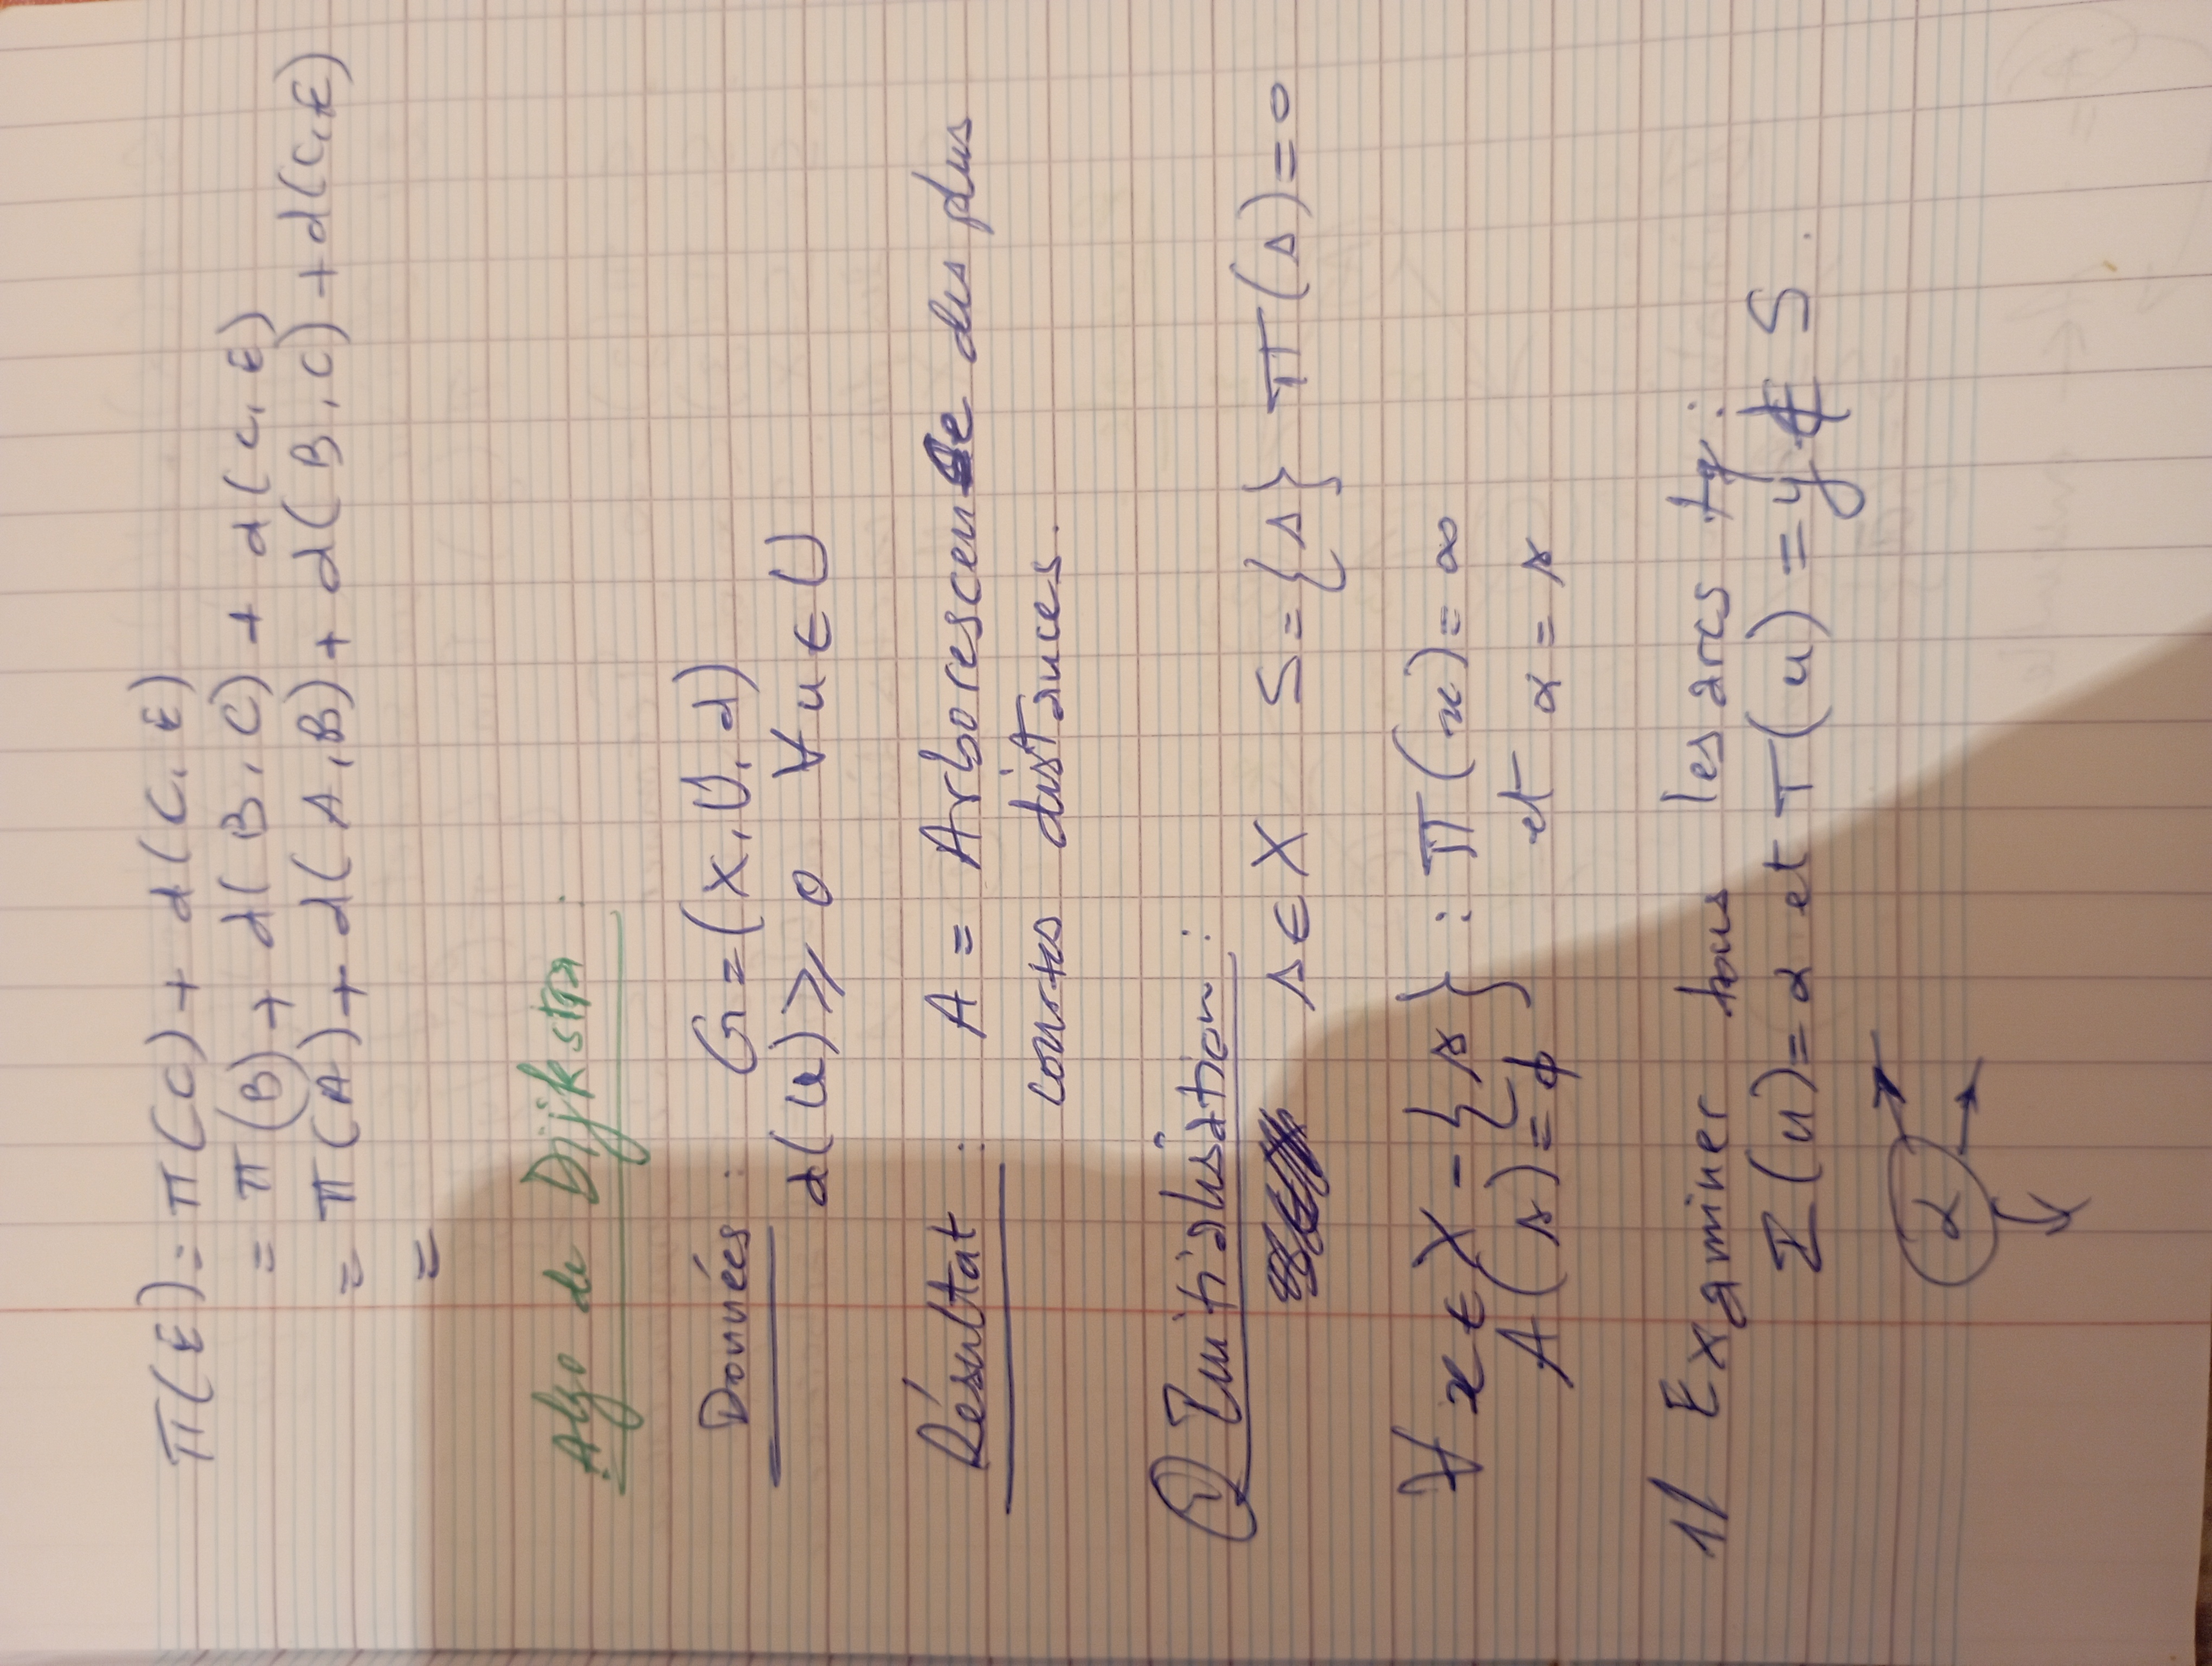 π(E) = π(C) + d(C,E)
= π(B) + d(B,C) + d(C,E)
= π(A) + d(A,B) + d(B,C) + d(C,E)
=
Algo de Dijkstra.
Données : G = (X,U,d)
d(u) ≥ 0 ∀ u ∈ U
Résultat : A = Arborescence des plus
courtes distances.
① Initialisation :
s ∈ X S = {s} π(s) = 0
∀ x ∈ X - {s} : π(x) = ∞
A(s) = ϕ et α = s
1/ Examiner tous les arcs tq :
I(u) = α et T(u) = y ∉ S.
α